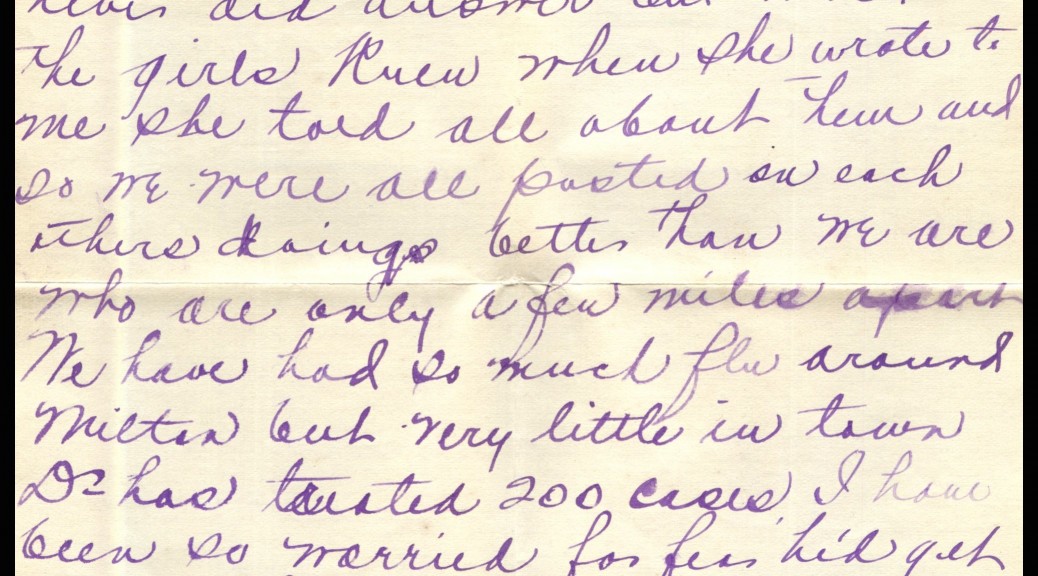 never did answer but
the girls knew when she wrote to
me she told all about them and
so we were all posted on each
others doings better than we are
who are only a few miles apart
We have had so much flu around
Milton but very little in town
Dr has treated 200 cases I have
been so worried for fear he'd get